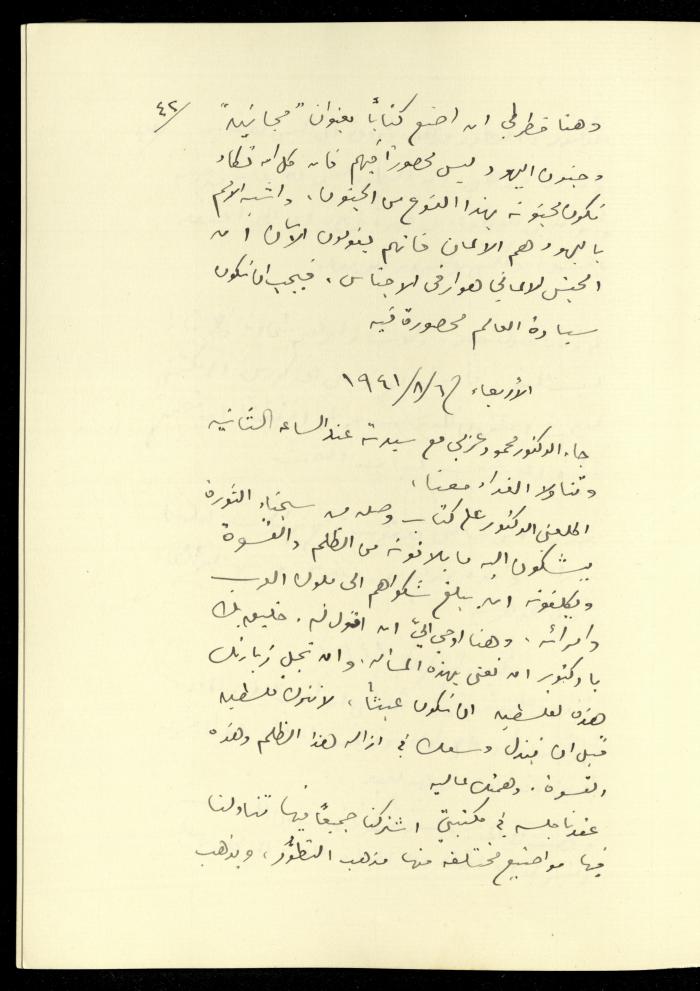 ٤٢/
وهنا خطر لي ان اضع كتاباً بعنوان "مجانين"
وجنون اليهود ليس محصوراً فيهم فان كل امة تكاد
تكون مجنونة بهذا النوع من الجنون. واشبه الامم
باليهود هم الالمان فانهم يقولون الآن ان
الجنس الالماني هو ارقى الاجناس، فيجب ان تكون
سيادة العالم محصورة فيه
الأربعاء ٦/٨/١٩٤١
جاء الدكتور محمود عزمي مع سيدته عند الساعة الثانية
وتناولا الغداء معنا،
اطلعني الدكتور على كتاب وصله من سجناء الثورة
يشكون اليه ما يلاقونه من الظلم والقسوة
ويكلفونه ان يبلغ شكواهم الى ملوك العرب
وامرائه. وهنا اوحي اليّ ان اقول له. خليق بك
يا دكتور ان تعنى بهذه المسألة. وان تجل زيارتك
هذه لفلسطين ان تكون عبثاً، لا تترك فلسطين
قبل ان تبذل وسعك في ازالة هذا الظلم وهذه
القسوة. وهمتك عالية
عقدنا جلسة في مكتبتي اشتركنا جميعاً فيها تناولنا
فيها مواضيع مختلفة منها مذهب التطوّر، ومذهب